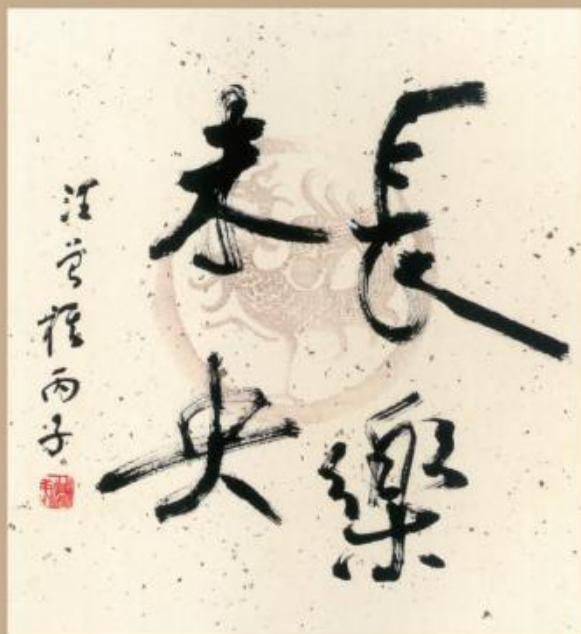 長樂
未央
汪曾祺丙子